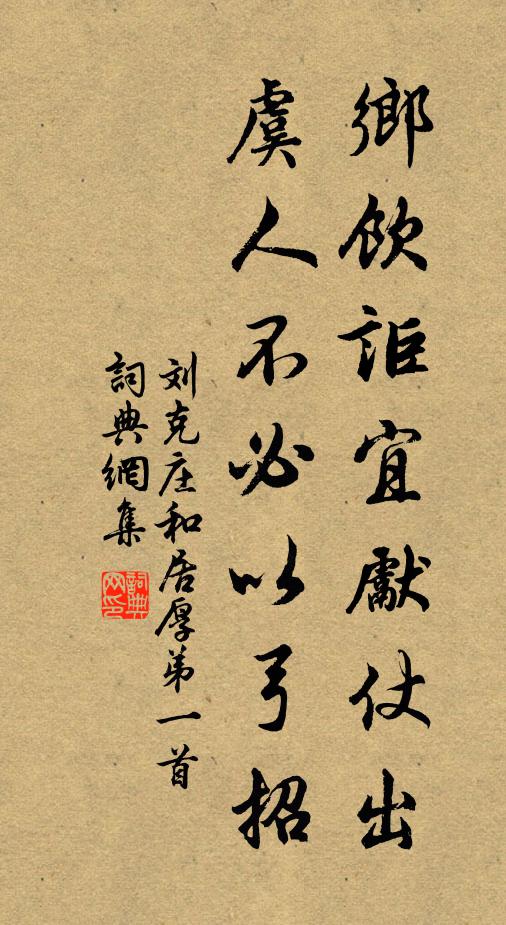 鄉飲詎宜獻仗出
虞人不必以弓招
刘克庄和居厚弟一首
詞典網集
詞典網印